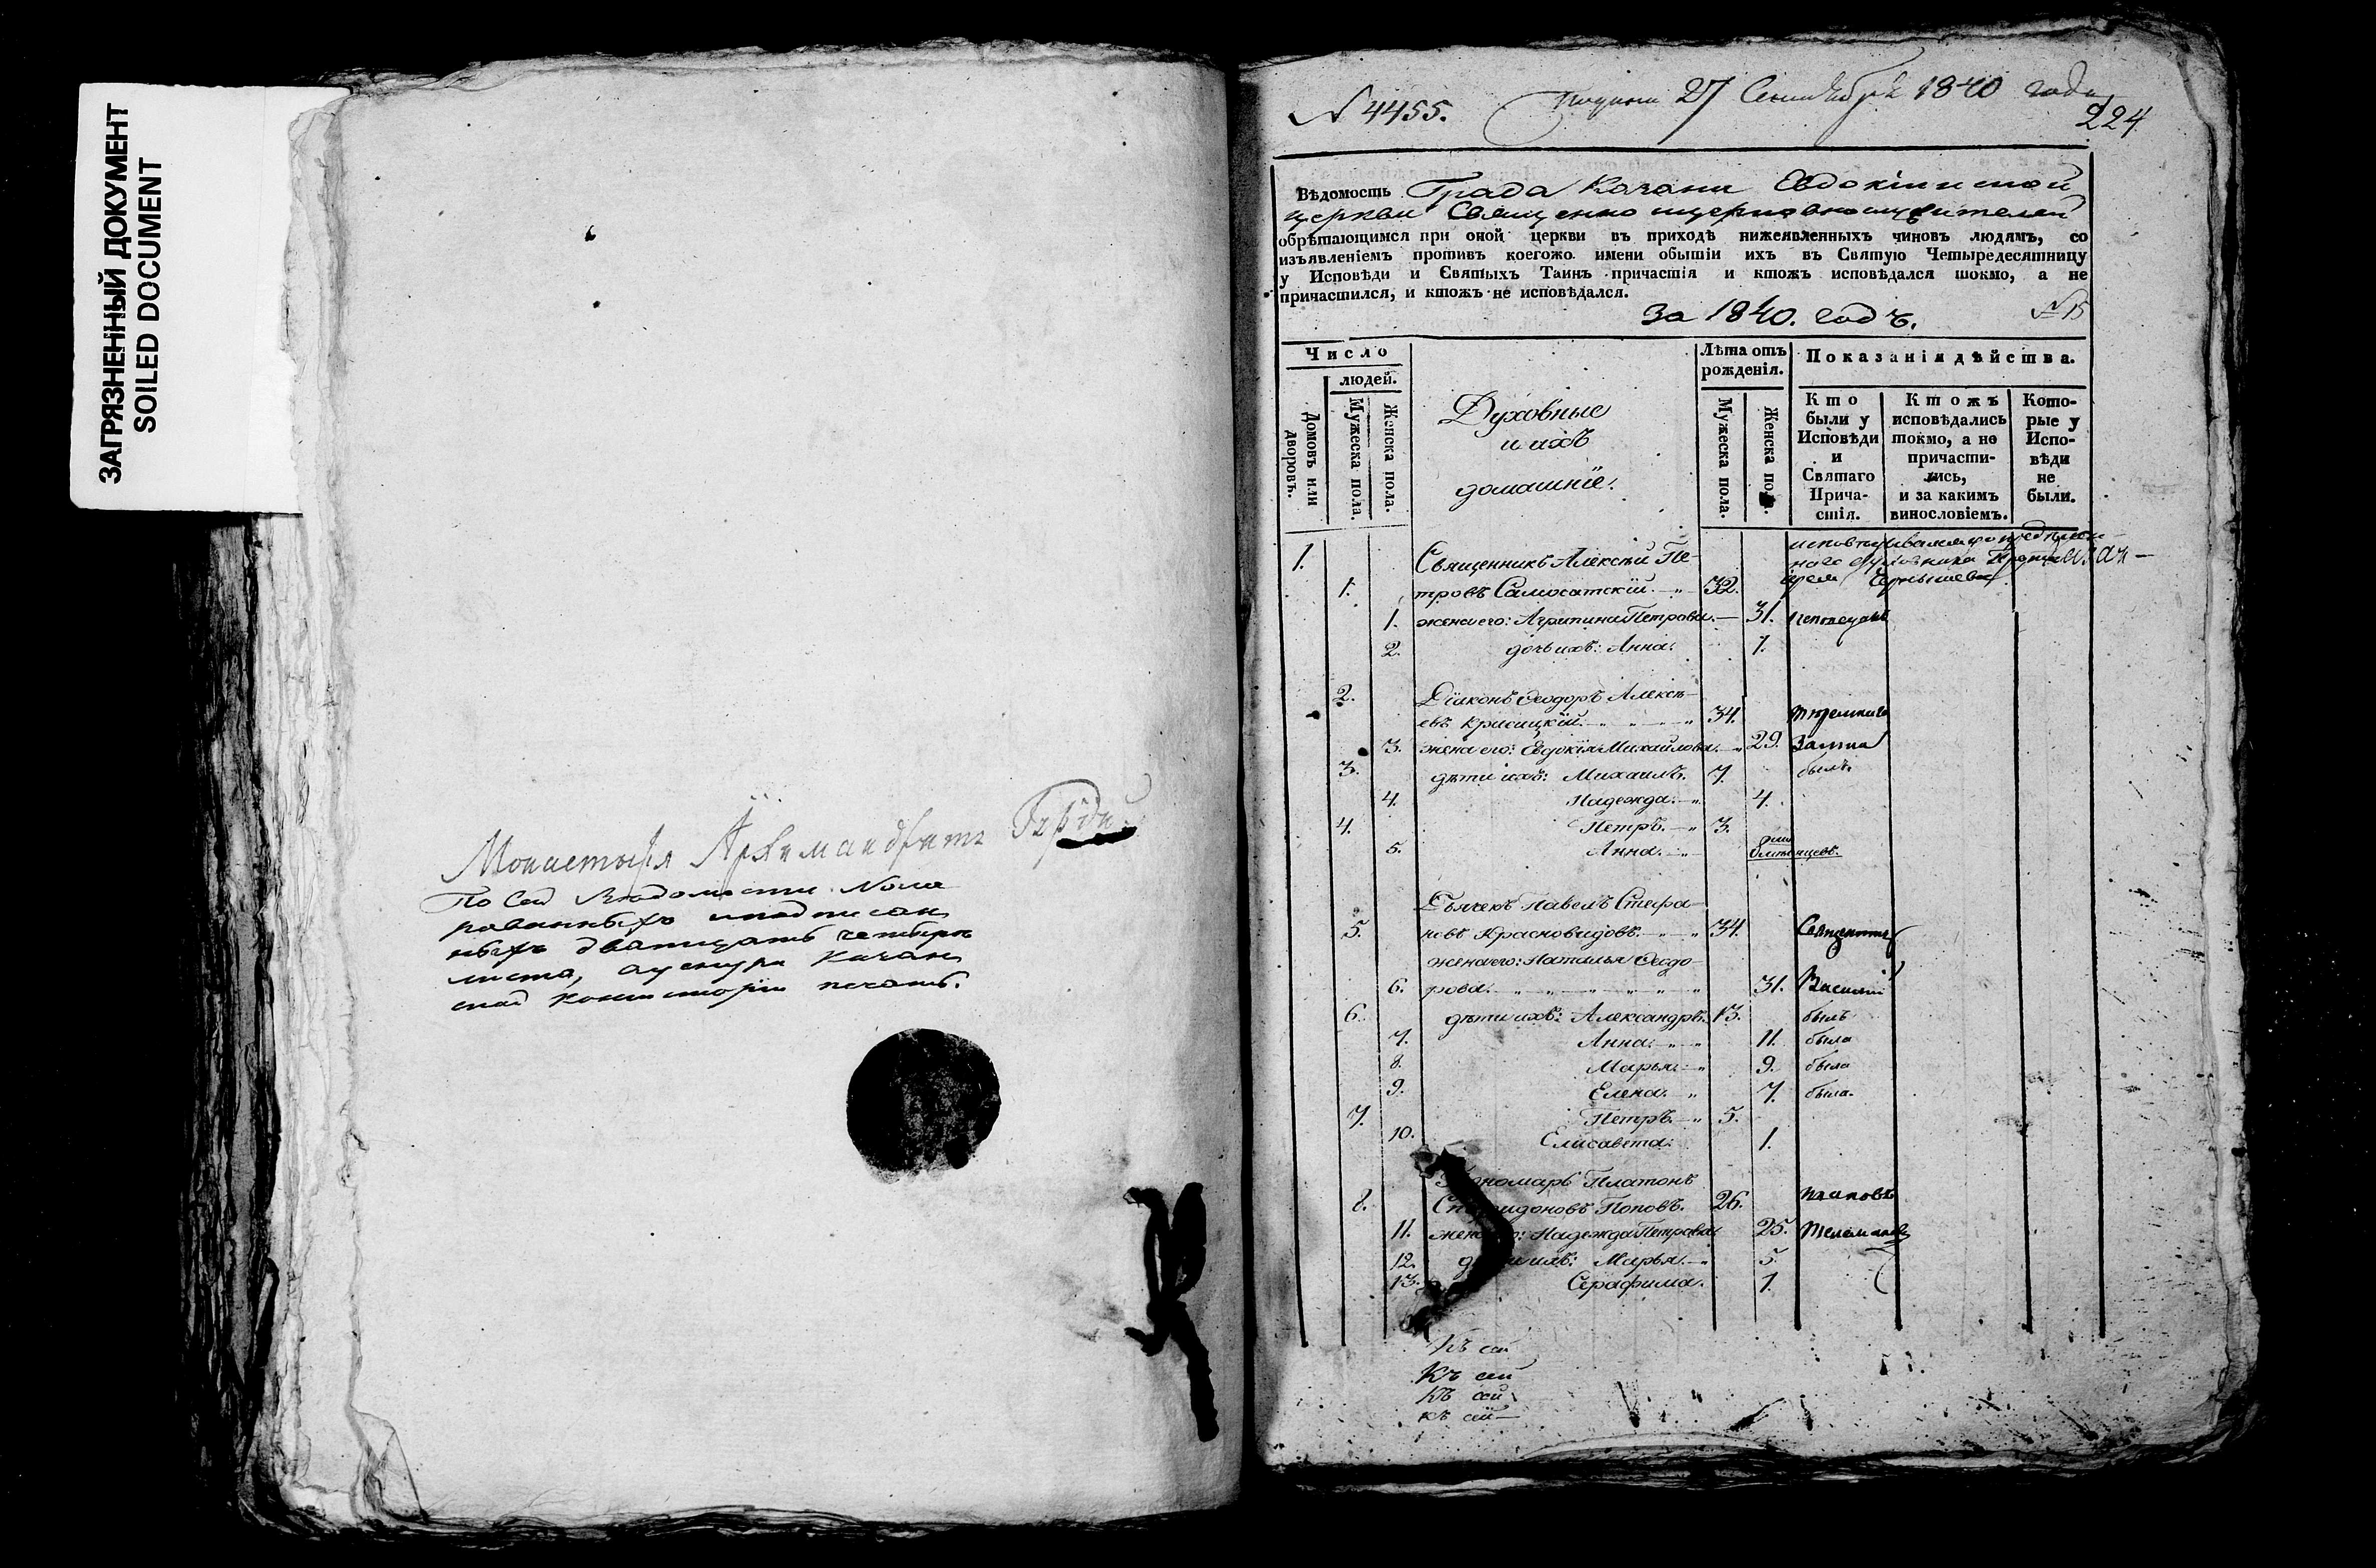 ЗАГРЯЗНЕННЫЙ ДОКУМЕНТ
SOILED DOCUMENT
Монастыря Архимандритъ
По сей Ведомости Номе
рованныхъ и подписан
ныхъ дватцать четыре
листа, а у снура Казан
ской Консисторіи печать.
N 4455.
27 Сентября 1840 года
224
Вѣдомость Града Казани Евдокіинской
церкви Священно церковнослужителей
обрѣтающимся при оной церкви въ приходѣ нижеявленныхъ чиновъ людямъ, со
изъявленіемъ противъ коегожо имени обытіи ихъ въ Святую Четыредесятницу
у Исповѣди и Святыхъ Таинъ причастія и ктожъ исповѣдался токмо, а не
причастился, и ктожъ не исповѣдался.
За 1840. годъ.
№ 15
Число
людей.
Домовъ или дворовъ.
Мужеска пола.
Женска пола.
Духовные
и ихъ
домашніе.
Лѣта отъ
рожденія.
Мужеска пола.
Женска пола.
Показанія дѣйства.
Кто
были у
Исповѣди
и
Святаго
Прича-
стія.
Ктожъ
исповѣдались
токмо, а не
причасти-
лись,
и за какимъ
винословіемъ.
Кото-
рые у
Испо-
вѣди
не
были.
1. Священникъ Алексѣй Пе-
1. тровъ Самосатскій. 32.
1. жена его: Агрипина Петрова. 31.
2. дочь ихъ: Анна. 1.
2. Діаконъ Ѳеодоръ Алексѣ-
евъ Крисицкій. 34.
3. жена его: Евдокія Михайлова. 29.
3. дѣти ихъ: Михаилъ. 7. былъ
4. Надежда. 4.
4. Петръ. 3.
5. Анна.
Дьячекъ Павелъ Стефа-
5. новъ Красновидовъ. 34. Священникъ
жена его: Наталья Ѳеодо-
6. рова. 31. Василій
6. дѣти ихъ: Александръ. 13. былъ
7. Анна. 11. была
8. Марья. 9. была
9. Елена. 7. была
7. Петръ. 5.
10. Елисавета. 1.
Пономарь Платонъ
8. Спиридоновъ Поповъ. 26.
11. жена его: Надежда Петрова. 25.
12. дѣти ихъ: Марья. 5.
13. Серафима. 1.
Къ сей
Къ сей
Къ сей
Къ сей